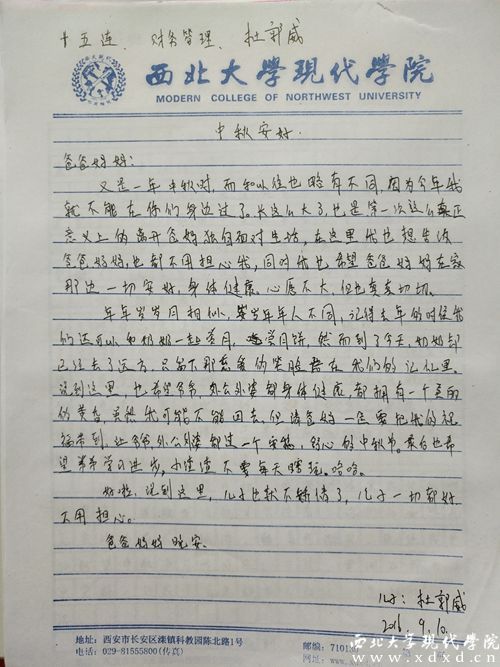 十五连、财务管理、杜郭威
西北大学现代学院
MODERN COLLEGE OF NORTHWEST UNIVERSITY
中秋安好.
爸爸妈妈：
又是一年中秋时，而和以往也略有不同，因为今年我
就不能在你们身边过了。长这么大了，也是第一次这么真正
意义上的离开爸妈独自面对生活，在这里我也想告诉
爸爸妈妈，也都不用担心我，同时我也希望爸爸妈妈在家
那边一切安好，身体健康，心愿不大，但也真真切切。
年年岁岁月相似，岁岁年年人不同，记得去年的时候我
们还可以和奶奶一起赏月，尝月饼，然而到了今天，奶奶却
已经去了远方，只留下那慈爱的笑脸存在我们的记忆里。
说到这里，也希望爷爷，外公外婆都身体健康，都拥有一个美丽
的黄昏。虽然我可能不能回去，但请爸妈一定要把我的祝
福带到，让爷爷外公外婆都过一个安稳，舒心的中秋节。最后也希
望弟弟学习进步，不要每天瞎玩。哈哈。
好啦，说到这里，儿子也就不矫情了，儿子一切都好
不用担心。
爸爸妈妈晚安.
儿子：杜郭威
2016.9.10.
地址：西安市长安区滦镇科教园陈北路1号
电话：029-81555800(传真)
邮编：7101
网址：www.
西北大学现代学院
www.xdxd.cn